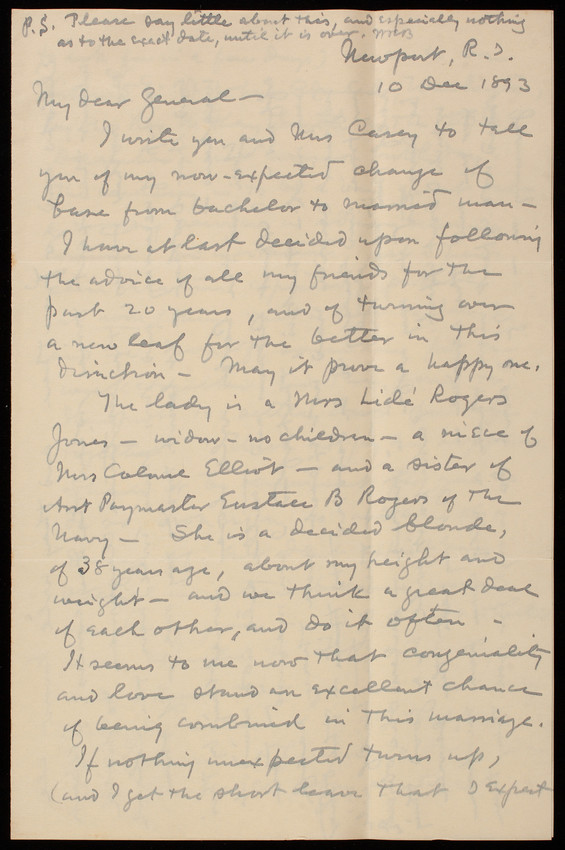 P.S. Please say little about this, and especially nothing
as to the exact date, until it is over. WRB
Newport, R.I.
10 Dec 1893
My dear General —
I write you and Mrs Casey to tell
you of my now-expected change of
base from bachelor to married man —
I have at last decided upon following
the advice of all my friends for the
past 20 years, and of turning over
a new leaf for the better in this
direction — May it prove a happy one.
The lady is a Mrs Lidé Rogers
Jones — widow — no children — a niece of
Mrs Colonel Elliot — and a sister of
Asst Paymaster Eustace B Rogers of the
Navy — She is a decided blonde,
of 38 years age, about my height and
weight — and we think a great deal
of each other, and do it often —
It seems to me now that congeniality
and love stand an excellent chance
of being combined in this marriage.
If nothing unexpected turns up,
(and I get the short leave that I expect